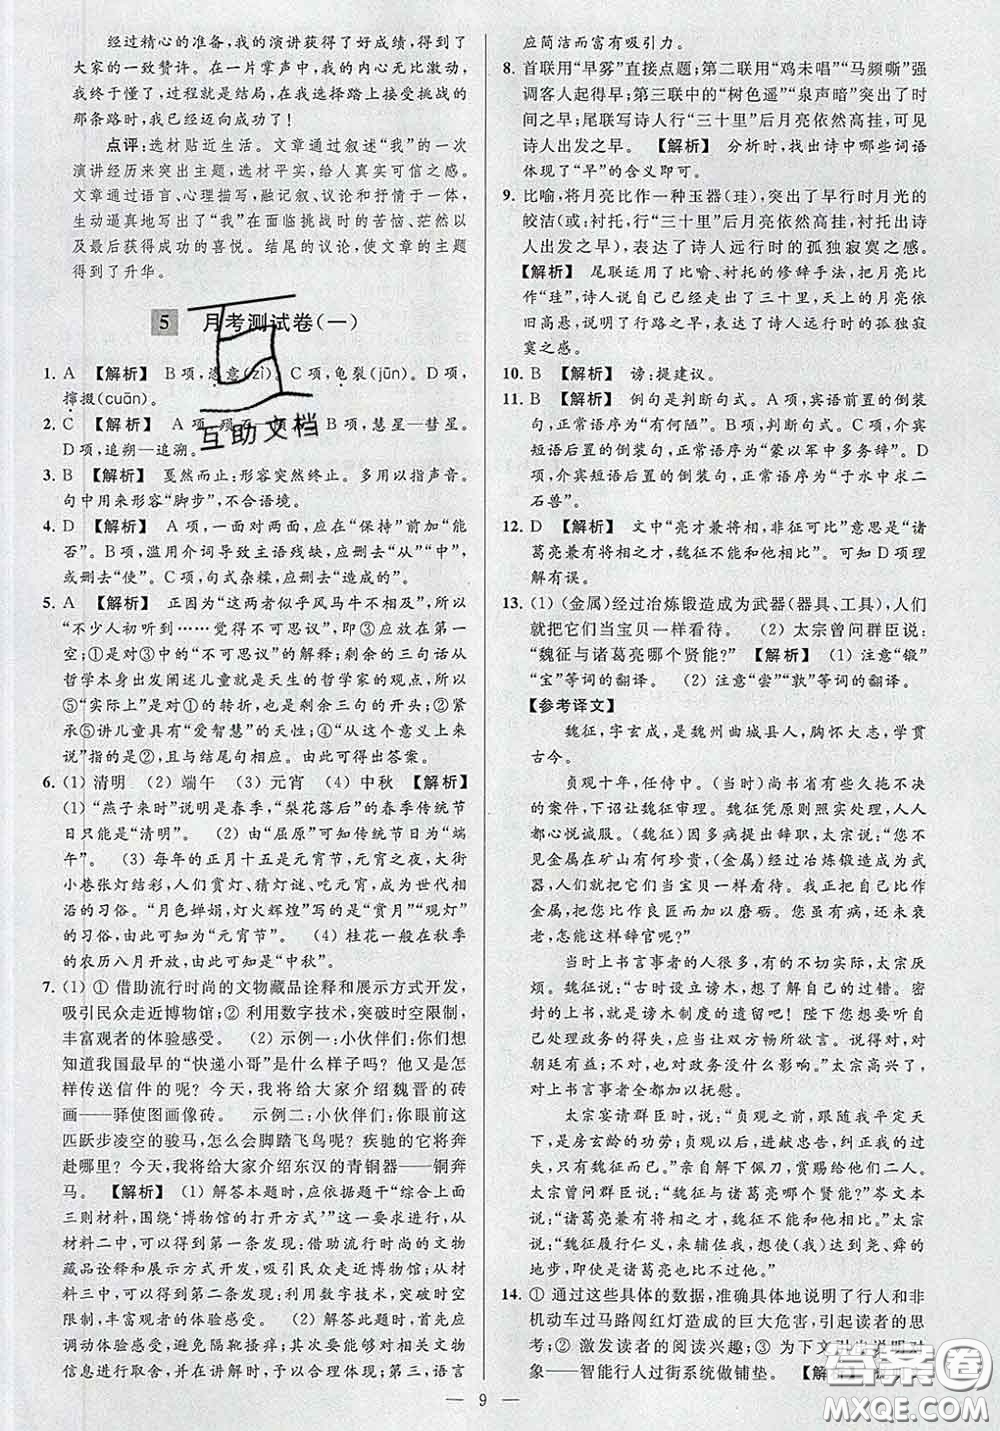 经过精心的准备，我的演讲获得了好成绩，得到了
大家的一致赞许。在一片掌声中，我的内心无比激动，
我终于懂了，过程就是结局，在我选择踏上接受挑战的
那条路时，我已经迈向成功了！
点评：选材贴近生活。文章通过叙述“我”的一次
演讲经历来突出主题，选材平实，给人真实可信之感。
文章通过语言、心理描写，融记叙、议论和抒情于一体，
生动逼真地写出了“我”在面临挑战时的苦恼、茫然以
及最后获得成功的喜悦。结尾的议论，使文章的主题
得到了升华。
5 月考测试卷(一)
1. A 【解析】 B项，恣意(zì)。C项，龟裂(jūn)。D项，
撺掇(cuān)。
2. C 【解析】 A项，
B项，慧星—彗星。
D项，追朔—追溯。
3. B 【解析】 戛然而止：形容突然终止。多用以指声音。
句中用来形容“脚步”，不合语境。
4. D 【解析】 A项，一面对两面，应在“保持”前加“能
否”。B项，滥用介词导致主语残缺，应删去“从”“中”，
或删去“使”。C项，句式杂糅，应删去“造成的”。
5. A 【解析】 正因为“这两者似乎风马牛不相及”，所以
“不少人初听到……觉得不可思议”，即③应放在第一
空；①是对③中的“不可思议”的解释；剩余的三句话从
哲学本身出发阐述儿童就是天生的哲学家的观点，所以
⑤“实际上”是对①的转折，是剩余三句的开头；②紧
承⑤讲儿童具有“爱智慧”的天性；④“从这个意义上来
说”指的是②，且与结尾句相应。由此可得出答案。
6. (1) 清明 (2) 端午 (3) 元宵 (4) 中秋 【解析】
(1) “燕子来时”说明是春季，“梨花落后”的春季传统节
日只能是“清明”。 (2) 由“屈原”可知传统节日为“端
午”。 (3) 每年的正月十五是元宵节，元宵之夜，大街
小巷张灯结彩，人们赏灯、猜灯谜、吃元宵，成为世代相
沿的习俗。“月色婵娟，灯火辉煌”写的是“赏月”“观灯”
的习俗，由此可知为“元宵节”。 (4) 桂花一般在秋季
的农历八月开放，由此可知是“中秋”。
7. (1) ① 借助流行时尚的文物藏品诠释和展示方式开发，
吸引民众走近博物馆；② 利用数字技术，突破时空限制，
丰富观者的体验感受。 (2) 示例一：小伙伴们：你们想
知道我国最早的“快递小哥”是什么样子吗？他们是怎
样传送信件的呢？今天，我将给大家介绍魏晋的砖
画——驿使图画像砖。 示例二：小伙伴们：你眼前这
匹跃步凌空的骏马，怎么会脚踏飞鸟呢？疾驰的它将奔
赴哪里？今天，我将给大家介绍东汉的青铜器——铜奔
马。 【解析】 (1) 解答本题时，应依据题干“综合上面
三则材料，围绕‘博物馆的打开方式’”这一要求进行，从
材料二中，可以得到第一条发现：借助流行时尚的文物
藏品诠释和展示方式开发，吸引民众走近博物馆；从材
料三中，可以得到第二条发现：利用数字技术，突破时空
限制，丰富观者的体验感受。 (2) 解答此题，首先应
调动体验感受，避免隔靴搔痒；其次要能够对相关文物
信息进行取舍，并在讲解时，予以合理体现；第三，语言
应简洁而富有吸引力。
8. 首联用“早雾”直接点题；第二联用“鸡未唱”“马频嘶”强
调客人起得早；第三联中的“树色遥”“泉声暗”突出行进
时之早；尾联写诗人行“三十里”后月亮依然高挂，可见
诗人出发之早。 【解析】 分析时，找出诗中哪些词语
体现了“早”的含义即可。
9. 比喻，将月亮比作一种玉器(珪)，突出了早行时月光的
皎洁(或：衬托，行“三十里”后月亮依然高挂，衬托出诗
人出发之早)，表达了诗人远行时的孤独寂寞之感。
【解析】 尾联运用了比喻、衬托的修辞手法，把月亮比
作“珪”，诗人说自己已经走了三十里，天上的月亮依
旧高悬，说明了行路之早，表达了诗人远行时的孤独寂
寞之感。
10. B 【解析】 谤：提建议。
11. B 【解析】 例句是判断句式。A项，宾语前置的倒装
句，正常语序为“有何陋”。B项，判断句式。C项，状语
后置的倒装句，正常语序为“蒙以军中多务辞”。D项，
介宾短语后置的倒装句，正常语序为“于水中求二
石兽”。
12. D 【解析】 文中“亮才兼将相，非征可比”意思是“诸
葛亮兼有将相之才，魏征不能和他相比”。可知D项理
解有误。
13. (1) (金属)经过冶炼锻造成为武器(器具、工具)，人们
就把它们当宝贝一样看待。 (2) 太宗曾问群臣说：
“魏征与诸葛亮哪个贤能？” 【解析】 (1) 注意“锻”
“宝”等词的翻译。 (2) 注意“尝”“孰”等词的翻译。
【参考译文】
魏征，字玄成，是魏州曲城县人，胸怀大志，贯学
古今。
贞观十年，任侍中。(当时)尚书省有些久拖不决
的案件，下诏让魏征审理。魏征凭原则照实处理，人人
都心悦诚服。(魏征)因多病提出辞职，太宗说：“您不
见金属在矿山有何珍贵，(金属)经过冶炼锻造成为武
器，人们都把它们当宝贝一样看待。我正把自己比作
金属，把您比作良匠而加以磨砺。您虽有病，还未衰
老，怎能这样辞官呢？”
当时上书言事者的人很多，有的不切实际，太宗厌
烦。魏征说：“古时设立谤木，想了解自己的过错。密
封的上书，就是谤木制度的遗留吧！陛下您想知道自
己处理政务的得失，应当让双方畅所欲言。说得对，对
朝廷有益；说得不对，也不妨碍政务。”太宗高兴了，
对上书言事者都加以抚慰。
太宗宴请群臣时，说：“贞观之前，跟随我平定天下，
是房玄龄的功劳；贞观以后，献出忠言，纠正我的过
失，只有魏征。”亲自解下佩刀，赏赐给他们二人。
太宗曾问群臣说：“魏征与诸葛亮哪个贤能？”岑文本
说：“诸葛亮兼有将相之才，魏征不能和他相比。”太宗
说：“魏征履行仁义，来辅佐我，想使(我)达到尧、舜的
地步，即使是诸葛亮也比不过他。”
14. ① 通过这些具体的数据，准确具体地说明了行人和非
机动车过马路闯红灯造成的巨大危害，引起读者的思
考；② 激发读者的阅读兴趣；③ 为下文引出说明对
象——智能行人过街系统做铺垫。 【解析】
互助文档
答案圈
MXQE.COM
— 9 —